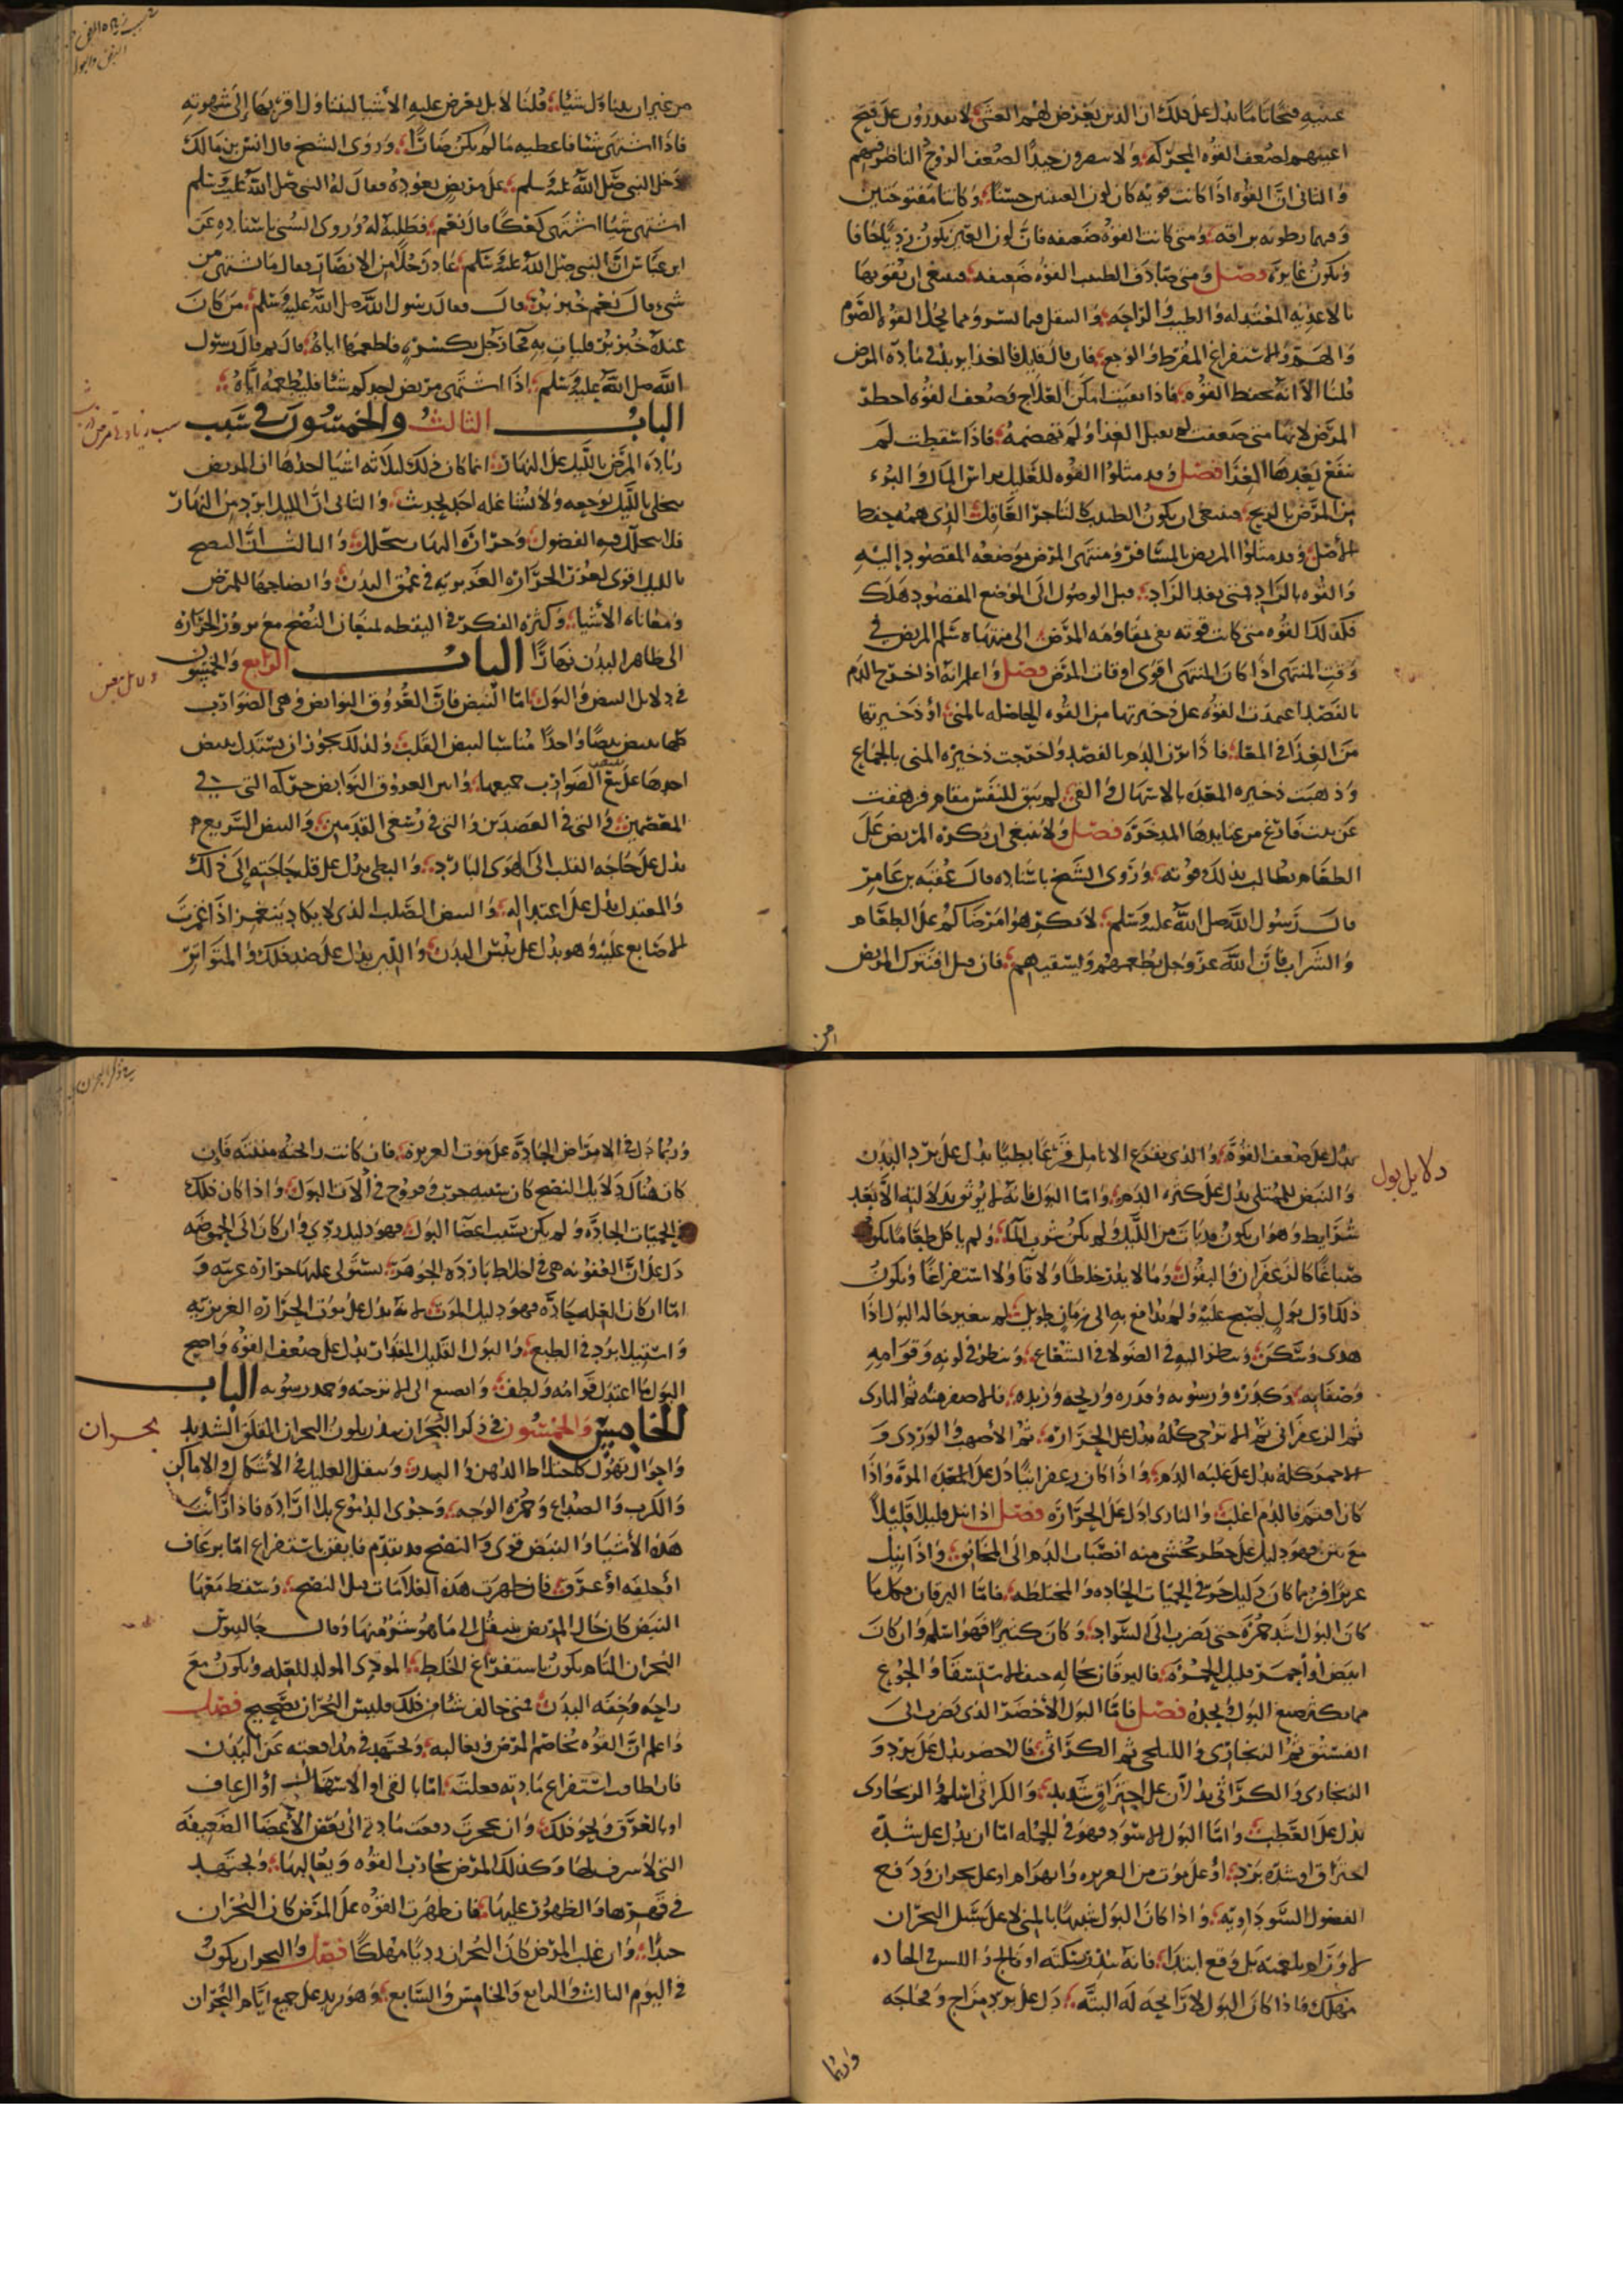 عينيه فتحا تاما يدل على ذلك ان الذين يعرض لهم الغشى لا يقدرون على فتح
اعينهم لضعف القوه المحركه ولا يبصرون جيدا لضعف الروح الناظر فيهم
والثانى ان القوه اذا كانت قويه كان لون العينين حسنا وكانتا مفتوحتين
وفيهما رطوبه براقه ومتى كانت القوه ضعيفه فان لون العين يكون رديا جافا
وتكون غايره فصل ومتى صادف الطبيب القوه ضعيفه فينبغى ان يقويها
بالاغذيه المعتدله والطيب والراحه والنقل فيما يسر ومما يحل القوه الصوم
والهم والاستفراغ المفرط والوجع فان قال قايل فالغذا يزيد فى مادة المرض
قلنا الا انه يحفظ القوه فاذا بقيت امكن العلاج وضعف القوه اخطر
المرض لانها متى ضعفت لم تقبل الغذا ولم تهضمه فاذا سقطت لم
ينفع بعدها الغذا فصل وقد مثلوا القوه للعليل براس المال والبرء
من المرض بالربح فينبغى ان يكون الطبيب كالتاجر العاقل الذى همه حفظ
الاصل وقد مثلوا المريض بالمسافر ومنتهى المرض بموضعه المقصود اليه
والقوه بالزاد فمتى نفد الزاد قبل الوصول الى الموضع المقصود هلك
فكذلك القوه متى كانت قوته تفى بمقاومه المرض الى منتهاه سلم المريض فى
وقت المنتهى اذا كان المنتهى اقوى اوقات المرض فصل واعلم انه اذا خرج الدم
بالفصد اعتمدت القوه على ذخيرتها من القوه الحاصله بالمنى او ذخيرتها
من الغذا فى المعدة فاذا نزف الدم بالفصد وخرجت ذخيره المنى بالجماع
وذهبت ذخيره المعده بالاسهال والقى لم يبق للنفس مقام فرهقت
عن بيت فارغ من فايدها المدخره فصل ولا ينبغى ان يكره المريض على
الطعام بطالب بذلك قوته وروى الشيخ باسناده قال عقبه بن عامر
قال رسول الله صلى الله عليه وسلم لا تكرهوا مرضاكم على الطعام
والشراب فان الله عز وجل يطعمهم ويسقيهم فان قيل افنترك المريض
من
من غير ان يتناول شيا قلنا لا بل يعرض عليه الاشيا ليتناول اقربها الى شهوته
فاذا اشتهى شيا فاعطيه ما لم يكن ضارا وروى الشيخ قال انس بن مالك
دخل النبى صلى الله عليه وسلم على مريض يعوده فقال له النبى صلى الله عليه وسلم
اشتهى شيا اشتهى كعكا قال نعم فطلبه له وروى السنى باسناده عن
ابن عباس ان النبى صلى الله عليه وسلم عاد رجلا من الانصار فقال ما تشتهى من
شى قال نعم خبز بر قال فقال رسول الله صلى الله عليه وسلم من كان
عنده خبز بر فليات به فجا رجل بكسره فاطعمها اياه قال ثم قال رسول
الله صلى الله عليه وسلم اذا اشتهى مريض احدكم شيا فليطعمه اياه
الباب الثالث والخمسون فى سبب
زيادة المرض بالليل على النهار انما كان ذلك لثلاثه اشيا احدها ان المريض
يتخلى بالليل بوجعه ولا يتشاغله احد بحديث والثانى ان الليل ابرد من النهار
فلا تتحلل فيه الفضول وحرارة النهار تحلل والثالث ان النضج
بالليل اقوى لغور الحرارة الغريزيه فى عمق البدن وانضاجها للمرض
ومعاناه الاشيا وكثره الفكر فى اليقظه تمنعان النضج مع بروز الحرارة
الى ظاهر البدن نهارا الباب الرابع والخمسون
فى دلايل النبض والبول اما النبض فان العروق النوابض وهى الضوارب
كلها تنبض نبضا واحدا مناسبا لنبض القلب ولذلك يجوز ان يستدل بنبض
احدها على نبض الضوارب جميعها وابين العروق النوابض حركه التى فى
المعصمين والتى فى العضدين والتى فى رسغى القدمين والنبض السريع
يدل على حاجه القلب الى الهوى البارد والبطى يدل على قلة حاجته الى ذلك
والمعتدل يدل على اعتداله والنبض الصلب الذى لا يكاد ينغمز اذا غمزت
الاصابع عليه وهو يدل على يبس البدن واللين يدل على ضد ذلك والمتواتر
دلايل نبض
دلايل بول
يدل على ضعف القوة والذى يقرع الانامل قرعا بطيا يدل على برد البدن
والنبض الممتلى يدل على كثره الدم واما البول فانه لا يوثق بدلالته الا بعد
شرايط وهو ان يكون قد بات من الليل ولم يكن شرب الما ولم ياكل طعاما يكون
صباغا كالزعفران والبقول وما لا يدر خلطا ولا قا ولا استفراغا ويكون
ذلك اول بول يصبح عليه ولم يدافع به الى زمان طويل لم تتغير حاله البول اذا
هدى وسكن وينظر اليه فى الضو لا فى الشعاع وينظر فى لونه وقوامه
وصفايه وكدره ورسوبه وقدره وريحه وزبده فالاصفر منه ثم النارى
ثم الزعفرانى ثم الاترجى كله يدل على الحرارة ثم الاصهب والوردى و
الاحمر كله يدل على غلبه الدم واذا كان زعفرانيا دل على المرة واذا
كان اقتم فالدم اغلب والنارى ادل على الحرارة فصل اذا بيل قليلا قليلا
مع نتن فهو دليل على خطر يخشى منه انصباب الدم الى المخانق واذا بيل
غزيرا فربما كان دليل خير فى الحميات الحاده والمختلطه فاما اليرقان فكلما
كان البول اشد حمرة حتى يضرب الى السواد وكان كثيرا فهو اسلم وان كان
ابيض او احمر قليل الحمره فاليرقان بحاله خيف الاستسقا والجوع
مما يكثر صبغ البول ويحده فصل فاما البول الاخضر الذى يضرب الى
الفستقى ثم الزنجارى والنيلجى ثم الكراثى فالاخضر يدل على برد و
الزنجارى والكراثى يدلان على احتراق شديد والكراثى اسلم والزنجارى
يدل على العطب واما البول الاسود فهو فى الجمله اما ان يدل على شده
احتراق او شده برد او على موت من الغريزه وانهزام او على بحران ودفع
الفضول السوداويه واذا كان البول شبيها بالمنى لا على سبيل البحران
ولا ورام بلغميه بل وقع ابتدا فانه ينذر بسكته او فالج
مهلك فاذا كان البول لا رايحه له البته دل على برد مزاج وفجاجه
وربما
وربما دل فى الامراض الحادة على موت الغريزة فان كانت رايحته منتنه فان
كان هناك دلايل النضج كان سببه جرب وقروح فى الات البول واذا كان ذلك
فى الحميات الحاده ولم يكن بسبب اعضا البول فهو دليل ردى وان كان الى الحموضه
دل على ان العفونه هى فى اخلاط بارده الجوهر يستولى عليها حراره غريبه و
اما ان كان العله حاده فهو دليل الموت لانه يدل على موت الحرارة الغريزيه
واستيلا برد فى الطبع والبول القليل المقدار يدل على ضعف القوه واصح
البول ما اعتدل قوامه ولطف وانصبغ الى الاترجيه وحمد رسوبه الباب
الخامس والخمسون فى ذكر البحران قد يكون البحران القلق الشديد
واحوال تهول كاختلاط الذهن والهذيان وتنقل العليل فى الاشكال والاماكن
والكرب والصداع وحمرة الوجه وجرى الدموع بلا ارادة فاذا رايت
هذه الاشيا والنبض قوى والنضج قد تقدم فايقن باستفراغ اما برعاف
او خلفه او عرق فان ظهرت هذه العلامات قبل النضج وسقط معها
النبض كان حال المريض ينتقل الى ما هو شر منها وقال جالينوس
البحران التام يكون باستفراغ الخلط الموذى المولد للعله ويكون مع
راحه وخفه البدن فمتى خالف شيا من ذلك فليس البحران بصحيح فصل
واعلم ان القوه تخاصم المرض وتغالبه وتجتهد فى مدافعته عن البدن
فان اطاقت استفراغ مادته فعلت اما بالقى او الاسهال او الرعاف
او بالعرق ونحو ذلك وان عجزت دفعت مادته الى بعض الاعضا الضعيفه
التى لا شرف لها وكذلك المرض يحارب القوه ويغالبها ويجتهد
فى قهرها والظهور عليها فان ظهرت القوه على المرض كان البحران
جيدا وان غلب المرض كان البحران رديا مهلكا فصل والبحران يكون
فى اليوم الثالث والرابع والخامس والسابع وهو يزيد على جميع ايام البحران
بحران